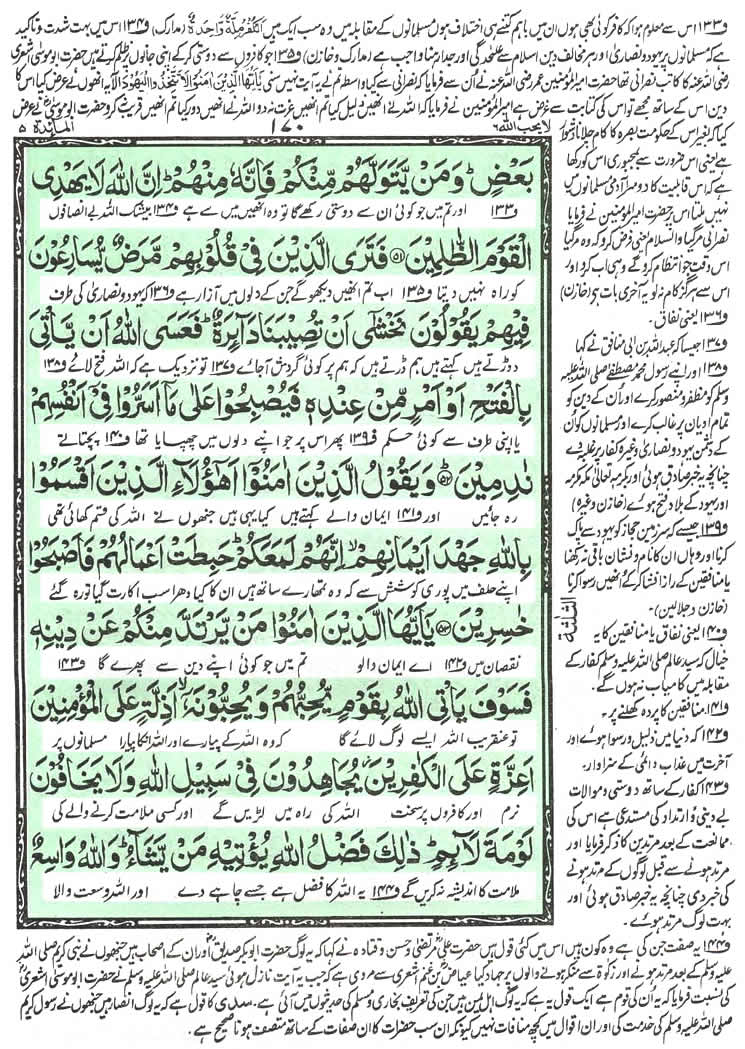 و۱۳۳ اس سے معلوم ہوا کہ کافر کوئی بھی ہوں ان میں باہم کتنے ہی اختلاف ہوں مسلمانوں کے مقابلہ میں وہ سب ایک ہیں اَلْکُفْرُ مِلَّۃٌ وَّاحِدَۃٌ (مدارک) و۱۳۴ اس میں بہت شدت و تاکید
ہے کہ مسلمانوں پر یہود و نصاریٰ اور ہر مخالف دین اسلام سے علیحدگی اور جدا رہنا واجب ہے (مدارک و خازن) و۱۳۵ جو کافروں سے دوستی کر کے اپنی جانوں پر ظلم کرتے ہیں حضرت ابو موسیٰ اشعری
رضی اللہ عنہ کا کاتب نصرانی تھا حضرت امیر المؤمنین عمر رضی اللہ عنہ نے اُن سے فرمایا کہ نصرانی سے کیا واسطہ تم نے یہ آیت نہیں سنی یٰۤاَیُّہَا الَّذِیْنَ اٰمَنُوْا لَا تَتَّخِذُوا الْیَہُوْدَ الآیہ انھوں نے عرض کیا اس کا
دین اس کے ساتھ مجھے تو اس کی کتابت سے غرض ہے امیر المؤمنین نے فرمایا کہ اللہ نے انھیں ذلیل کیا تم انھیں عزت نہ دو اللہ نے انھیں دور کیا تم انھیں قریب نہ کرو حضرت ابو موسیٰ نے عرض
المائدۃ ۵
۱۷۰
لا یحب اللہ ۶
بَعْضٍ ؕ وَ مَنْ یَّتَوَلَّهُمْ مِّنْكُمْ فَاِنَّهٗ مِنْهُمْ ؕ اِنَّ اللّٰهَ لَا یَهْدِی
و۱۳۳ اور تم میں جو کوئی ان سے دوستی رکھے گا تو وہ انھیں میں سے ہے و۱۳۴ بیشک اللہ بے انصافوں
الْقَوْمَ الظّٰلِمِیْنَ ۵۱ فَتَرَی الَّذِیْنَ فِیْ قُلُوْبِهِمْ مَّرَضٌ یُّسَارِعُوْنَ
کو راہ نہیں دیتا و۱۳۵ اب تم انھیں دیکھو گے جن کے دلوں میں آزار ہے و۱۳۶ کہ یہود و نصاریٰ کی طرف
فِیْهِمْ یَقُوْلُوْنَ نَخْشٰۤی اَنْ تُصِیْبَنَا دَآىِٕرَةٌ ؕ فَعَسَی اللّٰهُ اَنْ یَّاْتِیَ
دوڑتے ہیں کہتے ہیں ہم ڈرتے ہیں کہ ہم پر کوئی گردش آجائے و۱۳۷ تو نزدیک ہے کہ اللہ فتح لائے و۱۳۸
بِالْفَتْحِ اَوْ اَمْرٍ مِّنْ عِنْدِهٖ فَیُصْبِحُوْا عَلٰی مَاۤ اَسَرُّوْا فِیْۤ اَنْفُسِهِمْ
یا اپنی طرف سے کوئی حکم و۱۳۹ پھر اس پر جو اپنے دلوں میں چھپایا تھا و۱۴۰ پچتاتے
نٰدِمِیْنَ ؕ۵۲ وَ یَقُوْلُ الَّذِیْنَ اٰمَنُوْۤا اَهٰۤؤُلَآءِ الَّذِیْنَ اَقْسَمُوْا
رہ جائیں اور و۱۴۱ ایمان والے کہتے ہیں کیا یہی ہیں جنھوں نے اللہ کی قسم کھائی تھی
بِاللّٰهِ جَهْدَ اَیْمَانِهِمْ ۙ اِنَّهُمْ لَمَعَكُمْ ؕ حَبِطَتْ اَعْمَالُهُمْ فَاَصْبَحُوْا
اپنے حلف میں پوری کوشش سے کہ وہ تمھارے ساتھ ہیں ان کا کیا دھرا سب اکارت گیا تو رہ گئے
خٰسِرِیْنَ ۵۳ یٰۤاَیُّهَا الَّذِیْنَ اٰمَنُوْا مَنْ یَّرْتَدَّ مِنْكُمْ عَنْ دِیْنِهٖ
نقصان میں و۱۴۲ اے ایمان والو تم میں جو کوئی اپنے دین سے پھرے گا و۱۴۳
فَسَوْفَ یَاْتِی اللّٰهُ بِقَوْمٍ یُّحِبُّهُمْ وَ یُحِبُّوْنَهٗۤ ۙ اَذِلَّةٍ عَلَی الْمُؤْمِنِیْنَ
تو عنقریب اللہ ایسے لوگ لائے گا کہ وہ اللہ کے پیارے اور اللہ ان کا پیارا مسلمانوں پر
اَعِزَّةٍ عَلَی الْكٰفِرِیْنَ ؗ یُجَاهِدُوْنَ فِیْ سَبِیْلِ اللّٰهِ وَ لَا یَخَافُوْنَ
نرم اور کافروں پر سخت اللہ کی راہ میں لڑیں گے اور کسی ملامت کرنے والے کی
لَوْمَةَ لَآىِٕمٍ ؕ ذٰلِكَ فَضْلُ اللّٰهِ یُؤْتِیْهِ مَنْ یَّشَآءُ ؕ وَ اللّٰهُ وَاسِعٌ
ملامت کا اندیشہ نہ کریں گے و۱۴۴ یہ اللہ کا فضل ہے جسے چاہے دے اور اللہ وسعت والا
لا کہ بغیر اس کے حکومت بصرہ کا کام چلانا دشوار
ہے یعنی اس ضرورت سے بمجبوری اس کو رکھا
ہے کہ اس قابلیت کا دوسرا آدمی مسلمانوں میں
نہیں ملتا اس پر حضرت امیر المؤمنین نے فرمایا
نصرانی مر گیا والسلام یعنی فرض کرو کہ وہ مر گیا
اس وقت جو انتظام کرو گے وہی اب کرو اور
اس سے ہرگز کام نہ لو یہ آخری بات ہے (خازن)
و۱۳۶ یعنی نفاق۔
و۱۳۷ جیسا کہ عبد اللہ بن ابی منافق نے کہا
و۱۳۸ اور اپنے رسول محمد مصطفےٰ صلی اللہ علیہ
وسلم کو مظفر و منصور کرے اور ان کے دین کو
تمام ادیان پر غالب کرے اور مسلمانوں کو ان
کے دشمن یہود و نصاریٰ وغیرہ کفار پر غلبہ دے
چنانچہ یہ خبر صادق ہوئی اور بکرمہ تعالیٰ مکہ مکرمہ
اور یہود کے بلاد فتح ہوئے (خازن وغیرہ)
و۱۳۹ جیسے کہ سرزمین حجاز کو یہود سے پاک
کرنا اور وہاں ان کا نام و نشان باقی نہ رکھنا
یا منافقین کے راز افشا کر کے انھیں رسوا کرنا
(خازن و جلالین)۔
الثلثة
و۱۴۰ یعنی نفاق یا منافقین کا یہ
خیال کہ سید عالم صلی اللہ علیہ وسلم کفار کے
مقابلہ میں کامیاب نہ ہوں گے۔
و۱۴۱ منافقین کا پردہ کھلنے پر۔
و۱۴۲ کہ دنیا میں ذلیل و رسوا ہوئے اور
آخرت میں عذاب دائمی کے سزاوار۔
و۱۴۳ کفار کے ساتھ دوستی و موالات
بے دینی و ارتداد کی مستدعی ہے اس کی
ممانعت کے بعد مرتدین کا ذکر فرمایا اور
مرتد ہونے سے قبل لوگوں کے مرتد ہونے
کی خبر دی چنانچہ یہ خبر صادق ہوئی اور
بہت لوگ مرتد ہوئے۔
و۱۴۴ یہ صفت جن کی ہے وہ کون ہیں اس میں کئی قول ہیں حضرت علی مرتضیٰ و حسن و قتادہ نے کہا کہ یہ لوگ حضرت ابوبکر صدیق اور ان کے اصحاب ہیں جنھوں نے نبی کریم صلی اللہ
علیہ وسلم کے بعد مرتد ہونے اور زکوٰۃ سے منکر ہونے والوں پر جہاد کیا عیاض بن غنم اشعری سے مروی ہے کہ جب یہ آیت نازل ہوئی سید عالم صلی اللہ علیہ وسلم نے حضرت ابو موسیٰ اشعری
کی نسبت فرمایا کہ یہ اُن کی قوم ہے ایک قول یہ ہے کہ یہ لوگ اہل یمن ہیں جن کی تعریف بخاری و مسلم کی حدیثوں میں آئی ہے۔ سدی کا قول ہے کہ یہ لوگ انصار ہیں جنھوں نے رسول کریم
صلی اللہ علیہ وسلم کی خدمت کی اور ان اقوال میں کچھ منافات نہیں کیونکہ ان سب حضرات کا ان صفات کے ساتھ متصف ہونا صحیح ہے۔